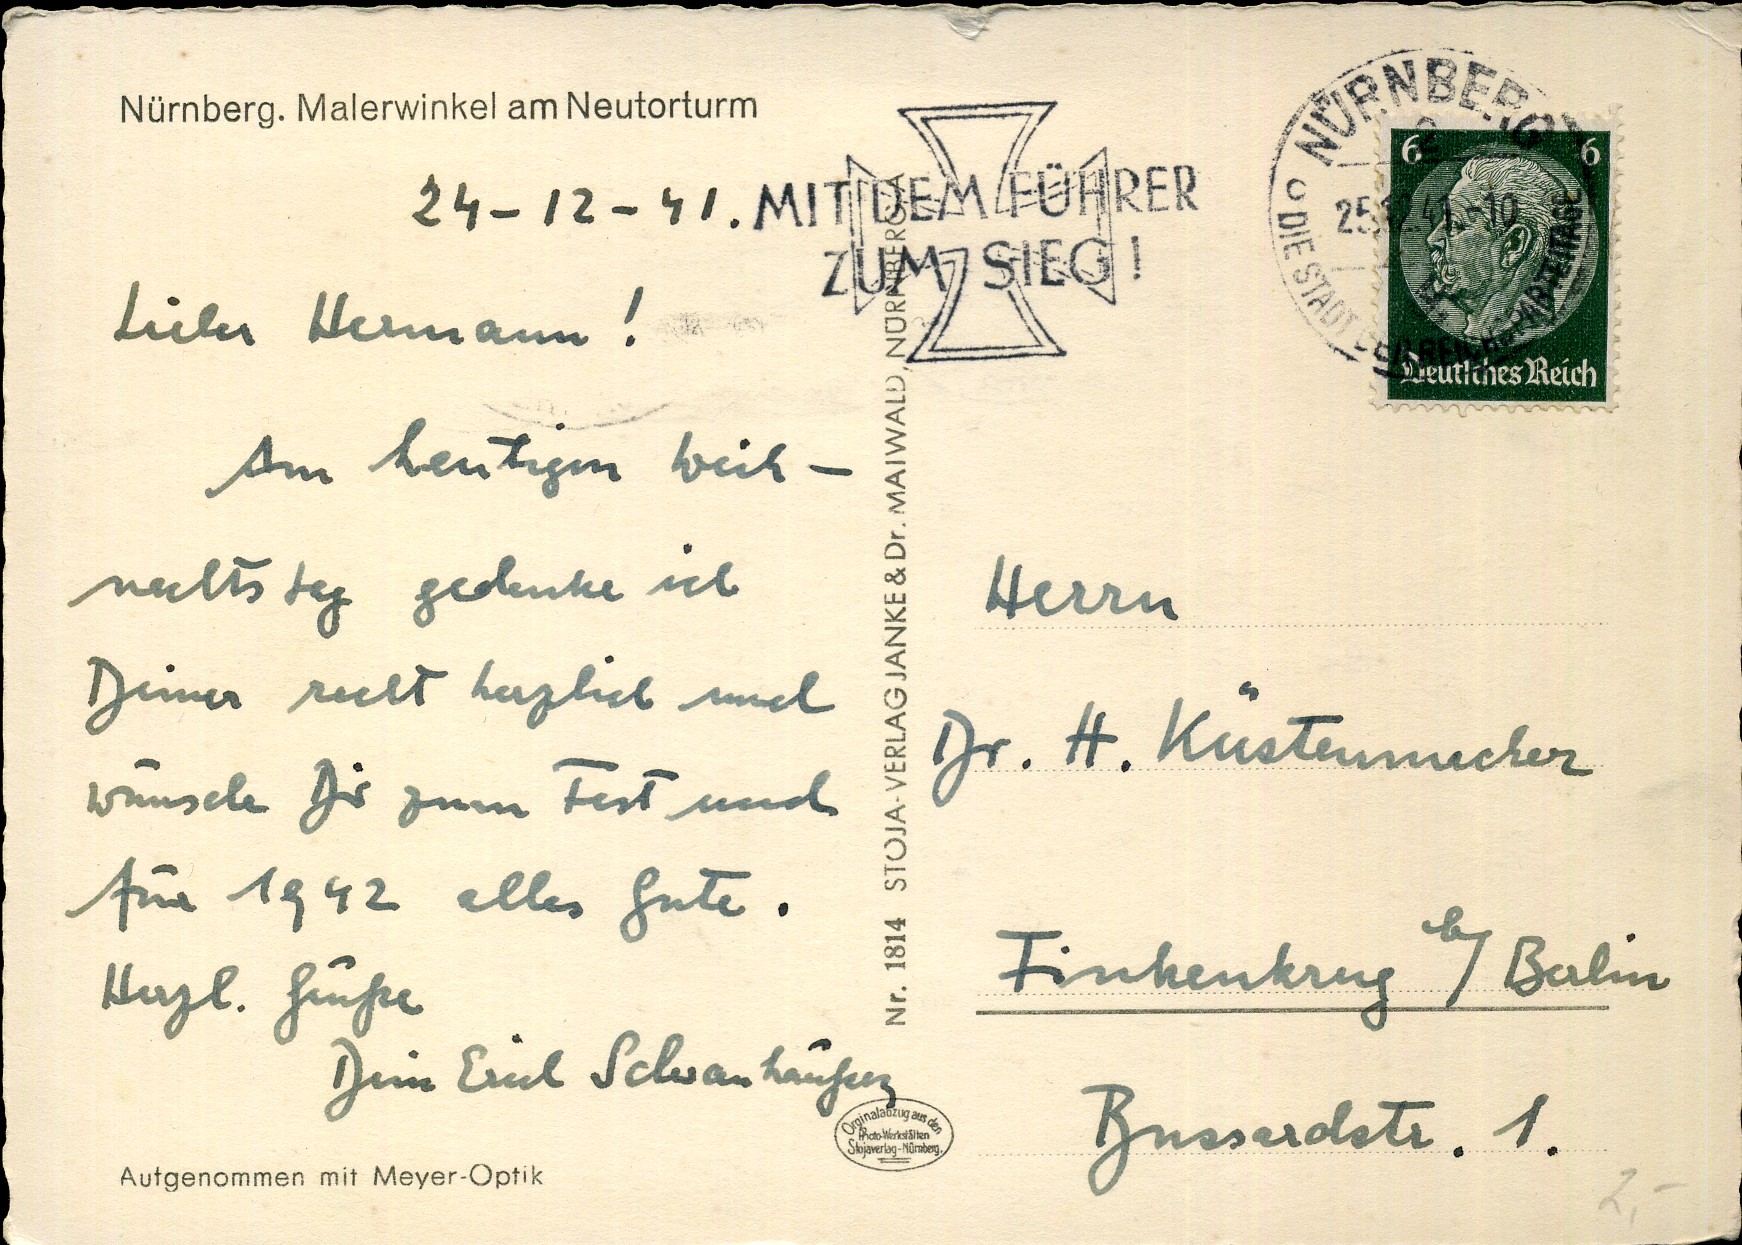 Nürnberg. Malerwinkel am Neutorturm
24-12-41.
MIT DEM FÜHRER
ZUM SIEG!
NÜRNBERG
25.12.41.-10
DIE STADT DER REICHSPARTEITAGE
6 6
Deutsches Reich
Lieber Hermann!
Am heutigen Weih-
nachtstag gedenke ich
Deiner recht herzlich und
wünsche Dir zum Fest und
für 1942 alles Gute.
Herzl. Grüße
Dein Erich Schwanhäußer
Aufgenommen mit Meyer-Optik
Nr. 1814 STOJA-VERLAG JANKE & Dr. MAIWALD, NÜRNBERG
Orginalabzug aus den
Photo-Werkstätten
Stojaverlag-Nürnberg.
Herrn
Dr. H. Küstenmacher
Finkenkrug b/ Berlin
Bussardstr. 1.
2,-